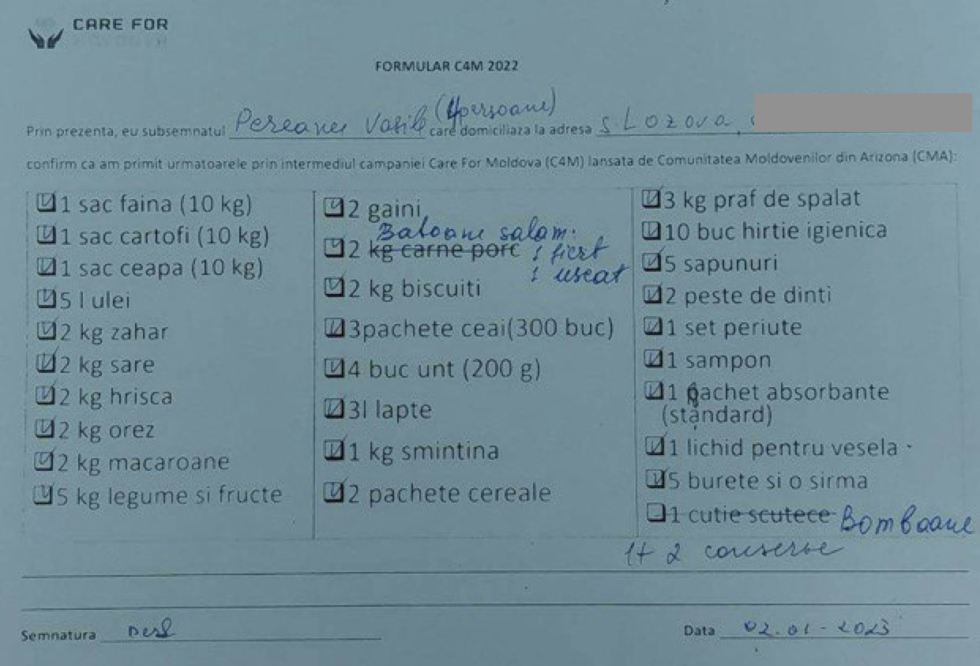 CARE FOR
MOLDOVA
FORMULAR C4M 2022
Prin prezenta, eu subsemnatul Vasile (4persoane) care domiciliaza la adresa s. Lozova,
confirm ca am primit urmatoarele prin intermediul campaniei Care For Moldova (C4M) lansata de Comunitatea Moldovenilor din Arizona (CMA):
☑1 sac faina (10 kg)
☑1 sac cartofi (10 kg)
☑1 sac ceapa (10 kg)
☑5 l ulei
☑2 kg zahar
☑2 kg sare
☑2 kg hrisca
☑2 kg orez
☑2 kg macaroane
☑5 kg legume si fructe
☑2 gaini
Batoane salam:
☑2 kg carne porc 1 fiert
1 uscat
☑2 kg biscuiti
☑3pachete ceai(300 buc)
☑4 buc unt (200 g)
☑3l lapte
☑1 kg smintina
☑2 pachete cereale
☑3 kg praf de spalat
☑10 buc hirtie igienica
☑5 sapunuri
☑2 peste de dinti
☑1 set periute
☑1 sampon
☑1 pachet absorbante
(standard)
☑1 lichid pentru vesela
☑5 burete si o sirma
☐1 cutie scutece Bomboane
1+ 2 conserve
Semnatura
Data 02.01-2023